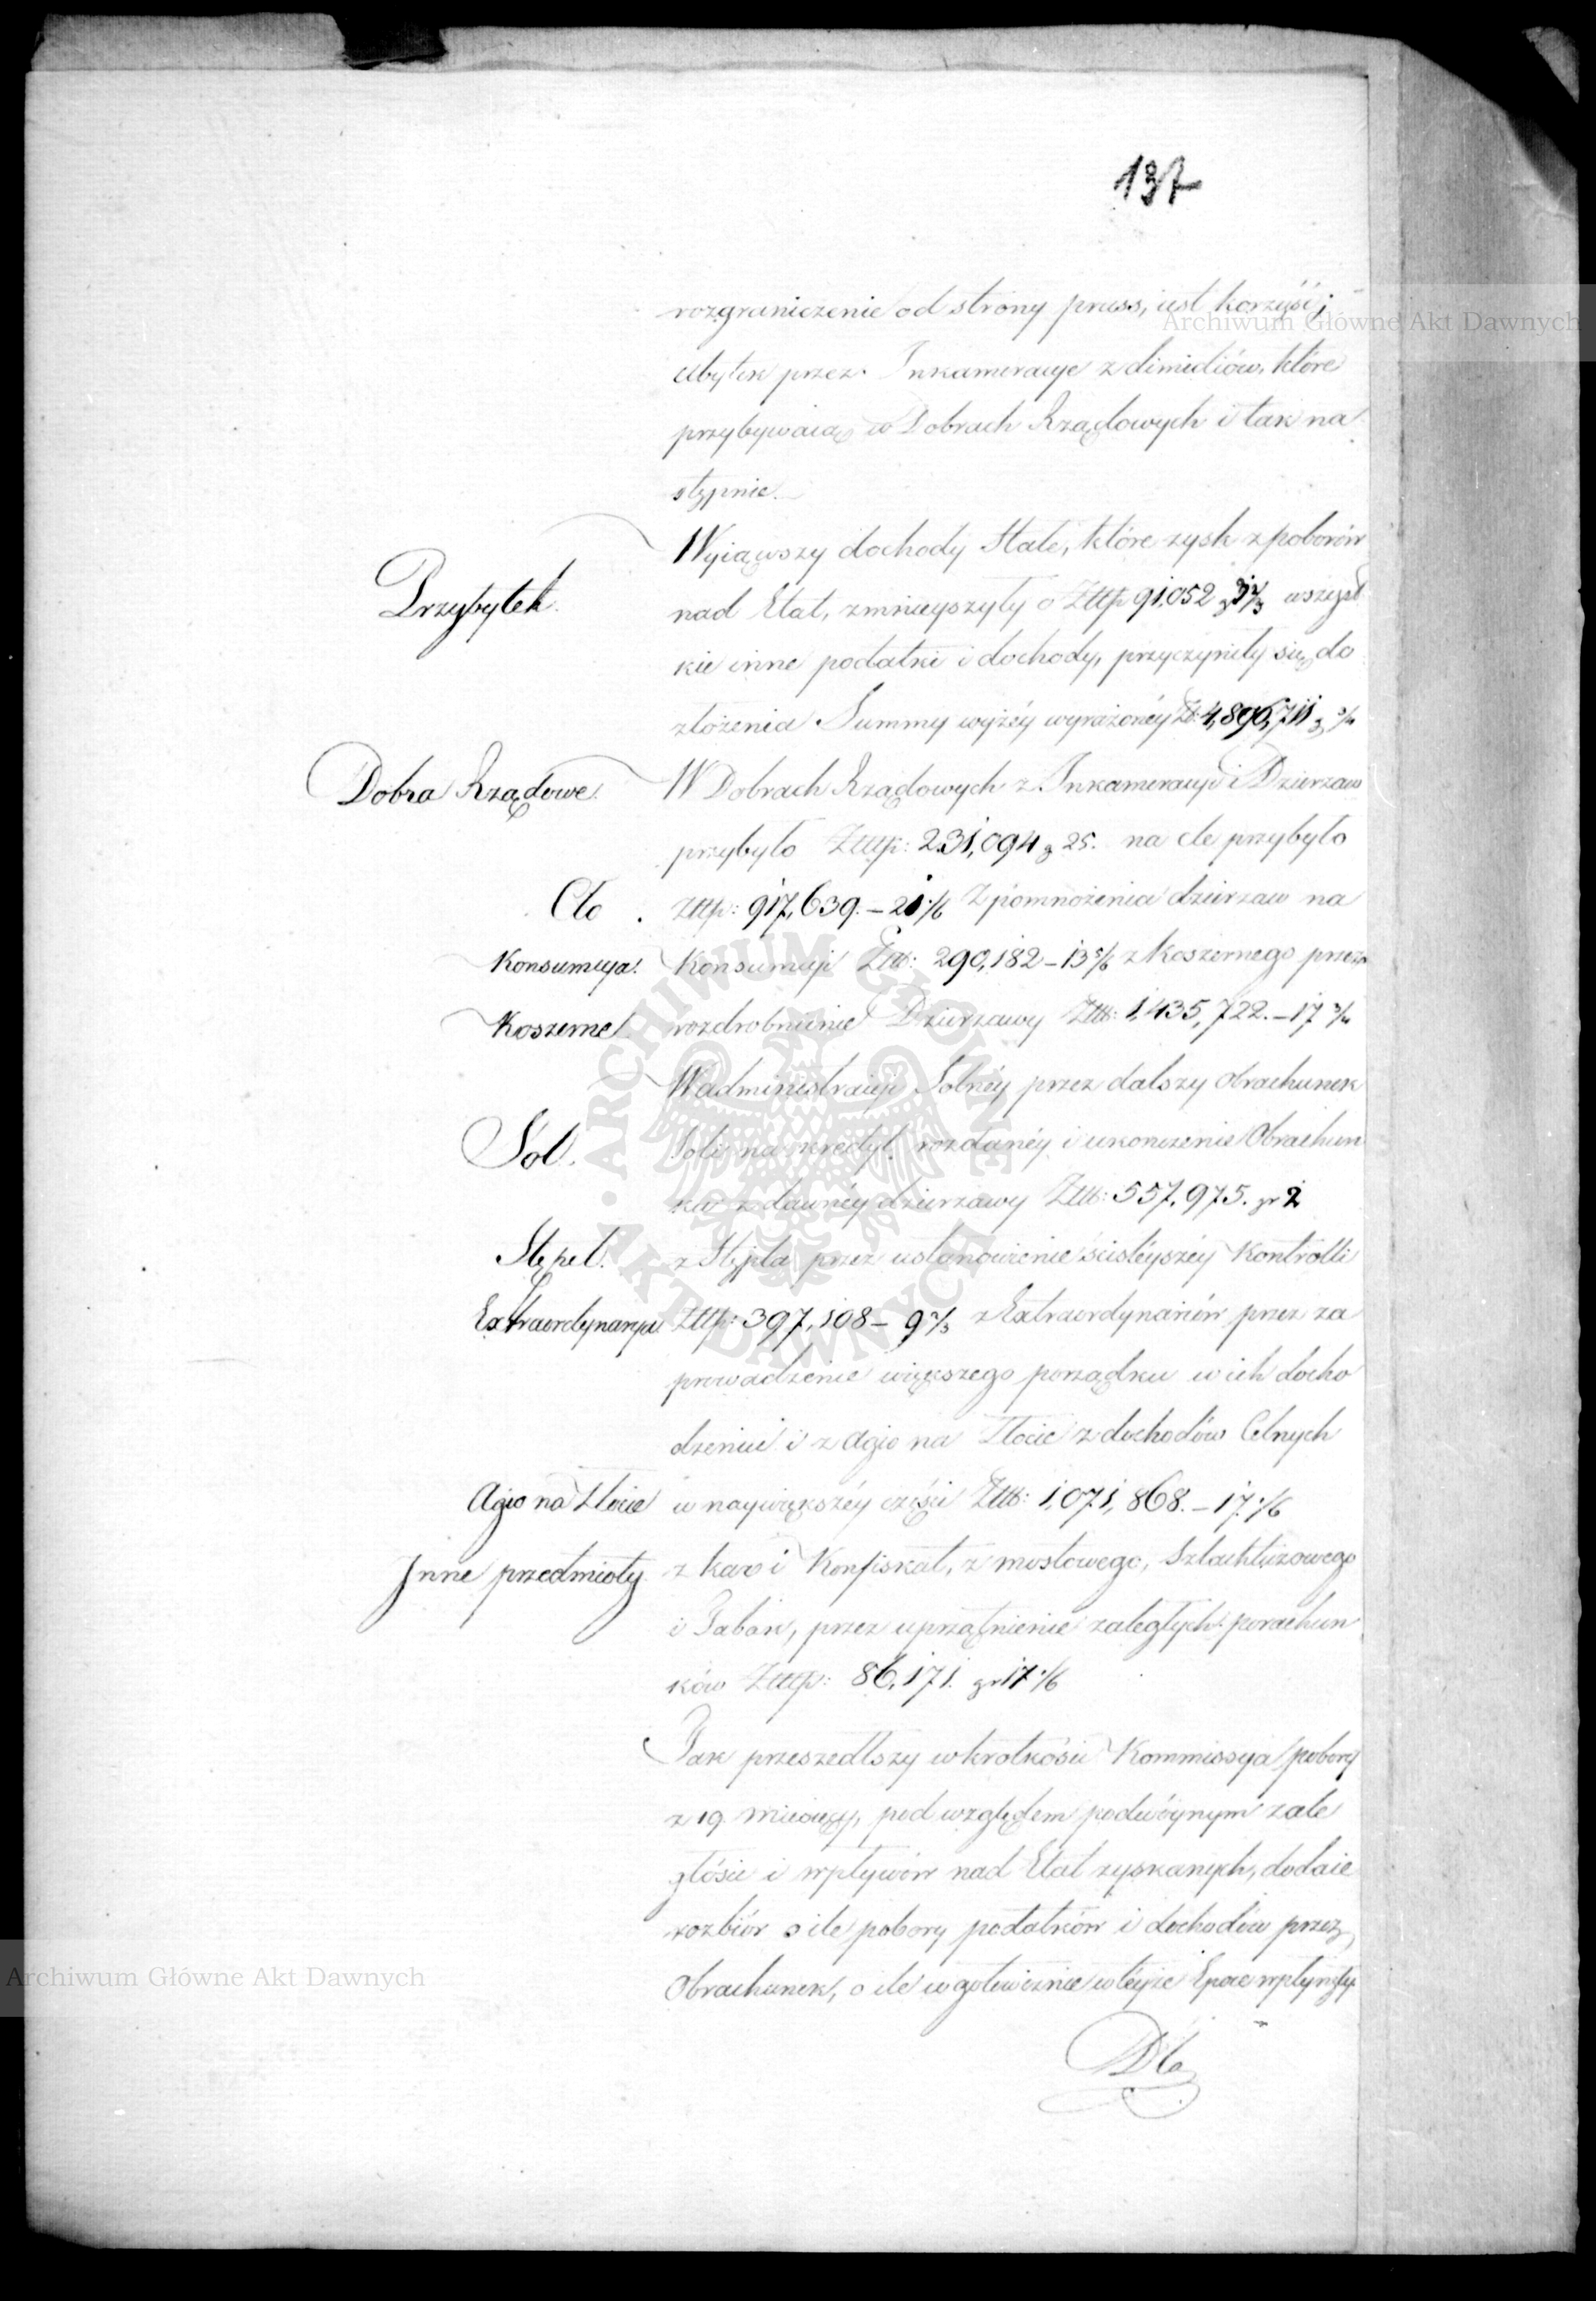 137
rozgraniczenie od strony pruss, iest korzyść;
Ubytek przez Inkameracye z dimidiów, które
przybywaią w Dobrach Rządowych i tak na
stępnie.
Wyiąwszy dochody Stałe, które zysk z poborów
Przybytek.
nad Etat, zmnieyszyły o Złtp 91,052 wszyst
kie inne podatki i dochody, przyczyniły się do
złożenia Summy wyżéy wyrażonéy Zł: 4,896,711
Dobra Rządowe. W Dobrach Rządowych z Inkameracyi i Dzierzaw
przybyło Złtp: 231,094 g 25. na cle przybyło
Cło. Złtp: 917,639.–21 1/6 Z pomnożenia dzierzaw na
Konsumcya. Konsumcyi Złtt: 290,182–13 5/6 z Koszernego przez
Koszerne. rozdrobnienie Dzierzawy Złtt: 1,435,722.–17
W administracyi Solnéy przez dalszy obrachunek
Sól. Soli na kredyt rozdanéy i ukonczenie Obrachun
ku z dawnéy dzierzawy Złtt: 557,975. gr 2
Stępel. z Stępla przez ustanowienie ścisléyszéy Kontrolli
Extraordynarya Złtp: 397,108–9 2/3 z Extraordynariów przez za
prowadzenie większego porządku w ich docho
dzeniu i z agio na Złocie z dochodów Celnych
Agio na Złocie w naywiększéy części Złtt: 1,071,868.–17 1/6
Inne przedmioty z kar i Konfiskat, z mostowego, Szlachtuzowego
i Tabak, przez uprzątnienie zaległych porachun
ków Złttp: 86,171. gr 17 1/6
Tak przeszedłszy w krotkości Kommissya pobory
z 19 miesięcy, pod względem podwóynym zale
głości i wpływów nad Etat zyskanych, dodaie
rozbiór o ile pobory podatków i dochodów przez
Obrachunek, o ile w gotowiznie w téyże Epoce wpłynęły.
Dla
Archiwum Główne Akt Dawnych
Archiwum Główne Akt Dawnych
ARCHIWUM GŁÓWNE AKT DAWNYCH